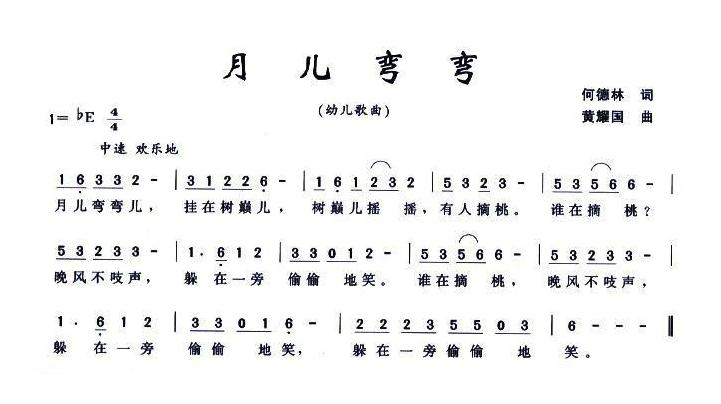 月儿弯弯
(幼儿歌曲)
何德林 词
黄耀国 曲
1=♭E 4/4
中速 欢乐地
1 6 3 3 2 - | 3 1 2 2 6 - | 1 6 1 2 3 2 - | 5 3 2 3 - | 5 3 5 6 6 -
月儿弯弯儿， 挂在树巅儿， 树巅儿摇 摇， 有人摘桃。 谁在摘 桃？
5 3 2 3 3 - | 1 · 6 1 2 | 3 3 0 1 2 - | 5 3 5 6 6 - | 5 3 2 3 3 -
晚风不吱声， 躲 在一旁 偷偷 地笑。 谁在摘 桃， 晚风不吱声，
1 · 6 1 2 | 3 3 0 1 6 - | 2 2 2 3 5 5 0 3 | 6 - - - ‖
躲 在一旁 偷偷 地笑， 躲在一旁偷偷 地 笑。